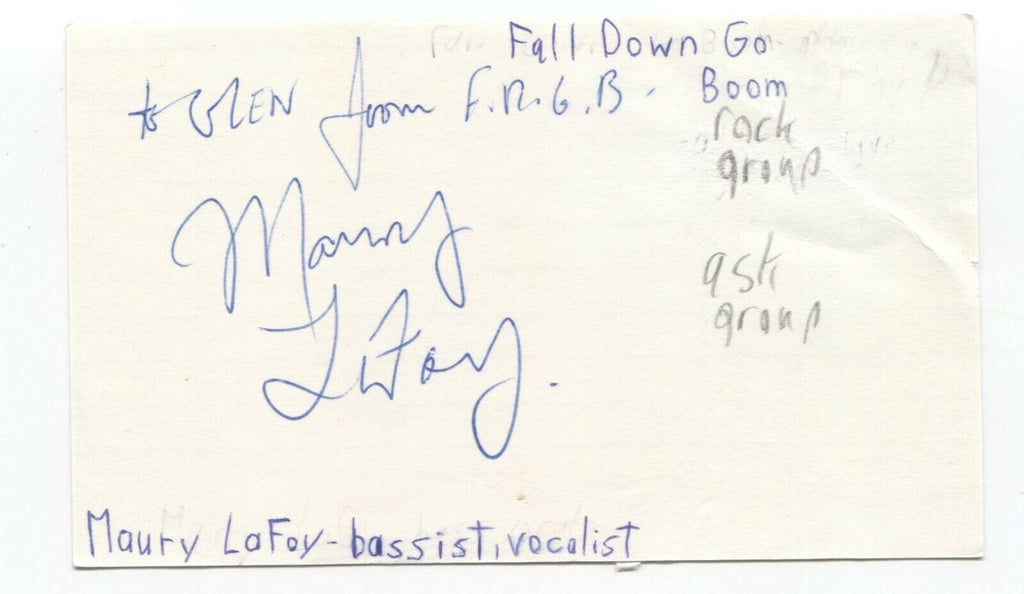 Fall Down Go
Boom
to GLEN from F.D.G.B.
rock
group
Maury
LaFoy.
ask
group
Maury LaFoy - bassist, vocalist